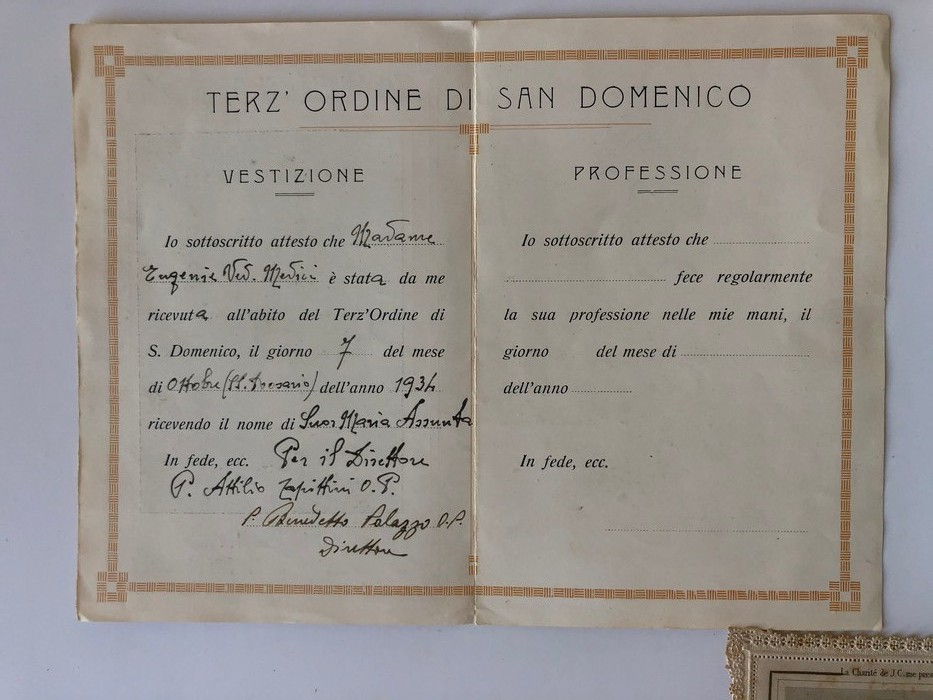 TERZ' ORDINE DI SAN DOMENICO
VESTIZIONE
Io sottoscritto attesto che Madame
Eugenie Ved. Medici è stata da me
ricevuta all'abito del Terz'Ordine di
S. Domenico, il giorno 7 del mese
di Ottobre (SS. Rosario) dell'anno 1934
ricevendo il nome di Suor Maria Assunta
In fede, ecc. Per il Direttore
P. Attilio O.P.
P. Benedetto Palazzo O.P.
Direttore
PROFESSIONE
Io sottoscritto attesto che
fece regolarmente
la sua professione nelle mie mani, il
giorno del mese di
dell'anno
In fede, ecc.
La Charité de J.C. me